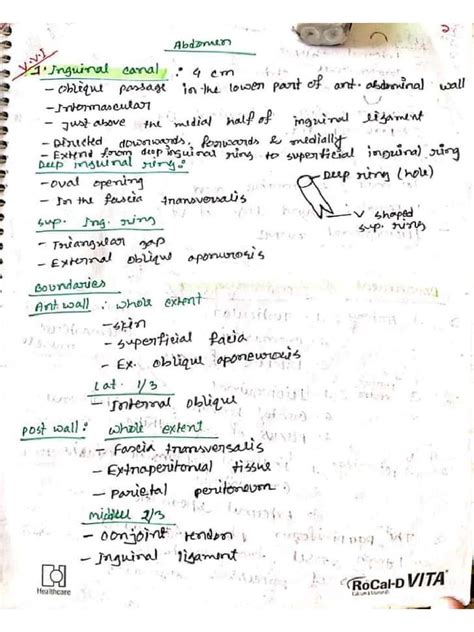 Abdomen
V.V.I
1. Inguinal canal : 4 cm
- oblique passage in the lower part of ant. abdominal wall
- Intermascular
- Just above the medial half of inguinal ligament
- Directed downwards, forwards & medially
- Extend from deep inguinal ring to superficial inguinal ring
Deep inguinal ring:
- oval opening
- In the fascia transversalis
Deep ring (hole)
V shaped
sup. ring
Sup. Ing. ring
- Triangular gap
- External oblique aponurosis
Boundaries
Ant wall : whole extent
- skin
- superficial facia
- Ex. oblique aponeurosis
Lat. 1/3
- Internal oblique
post wall : whole extent
- Fascia transversalis
- Extraperitonial tissue
- parietal peritoneum
middle 2/3
- conjoint tendon
- Inguinal ligament
Healthcare
RoCal-D VITA